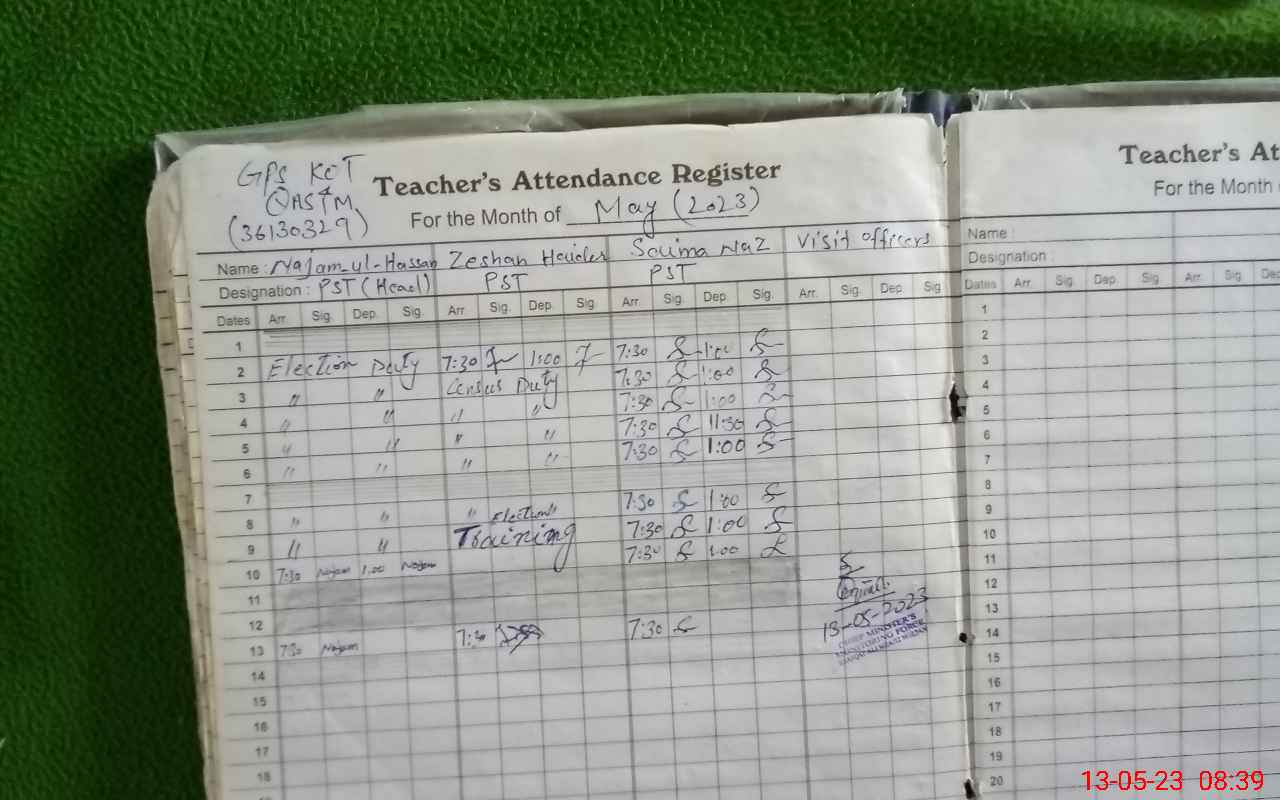 GPS KOT
QASIM
(36130329)
Teacher's Attendance Register
For the Month of May (2023)
Name : Najam-ul-Hassan Zeshan Haider Saima Naz Visit officers
Designation : PST (Head) PST PST
Dates Arr. Sig. Dep. Sig. Arr. Sig. Dep. Sig. Arr. Sig. Dep. Sig. Arr. Sig. Dep. Sig
1
2 Election Duty 7:30 1:00 7:30 1:00
3 " " Census Duty 7:30 1:00
4 " " " " 7:30 1:00
5 " " " " 7:30 11:30
6 " " " " 7:30 1:00
7
8 " " " Election " 7:30 1:00
9 " " Training 7:30 1:00
10 7:30 Najam 1:00 Najam 7:30 1:00
11
12
13 7:30 Najam 7:30 7:30
13-05-2023
CHIEF MINISTER'S
MONITORING FORCE
14
15
16
17
18
Teacher's At
For the Month
Name :
Designation :
Dates Arr. Sig. Dep. Sig. Arr. Sig. Dep
1
2
3
4
5
6
7
8
9
10
11
12
13
14
15
16
17
18
19
20
13-05-23 08:39